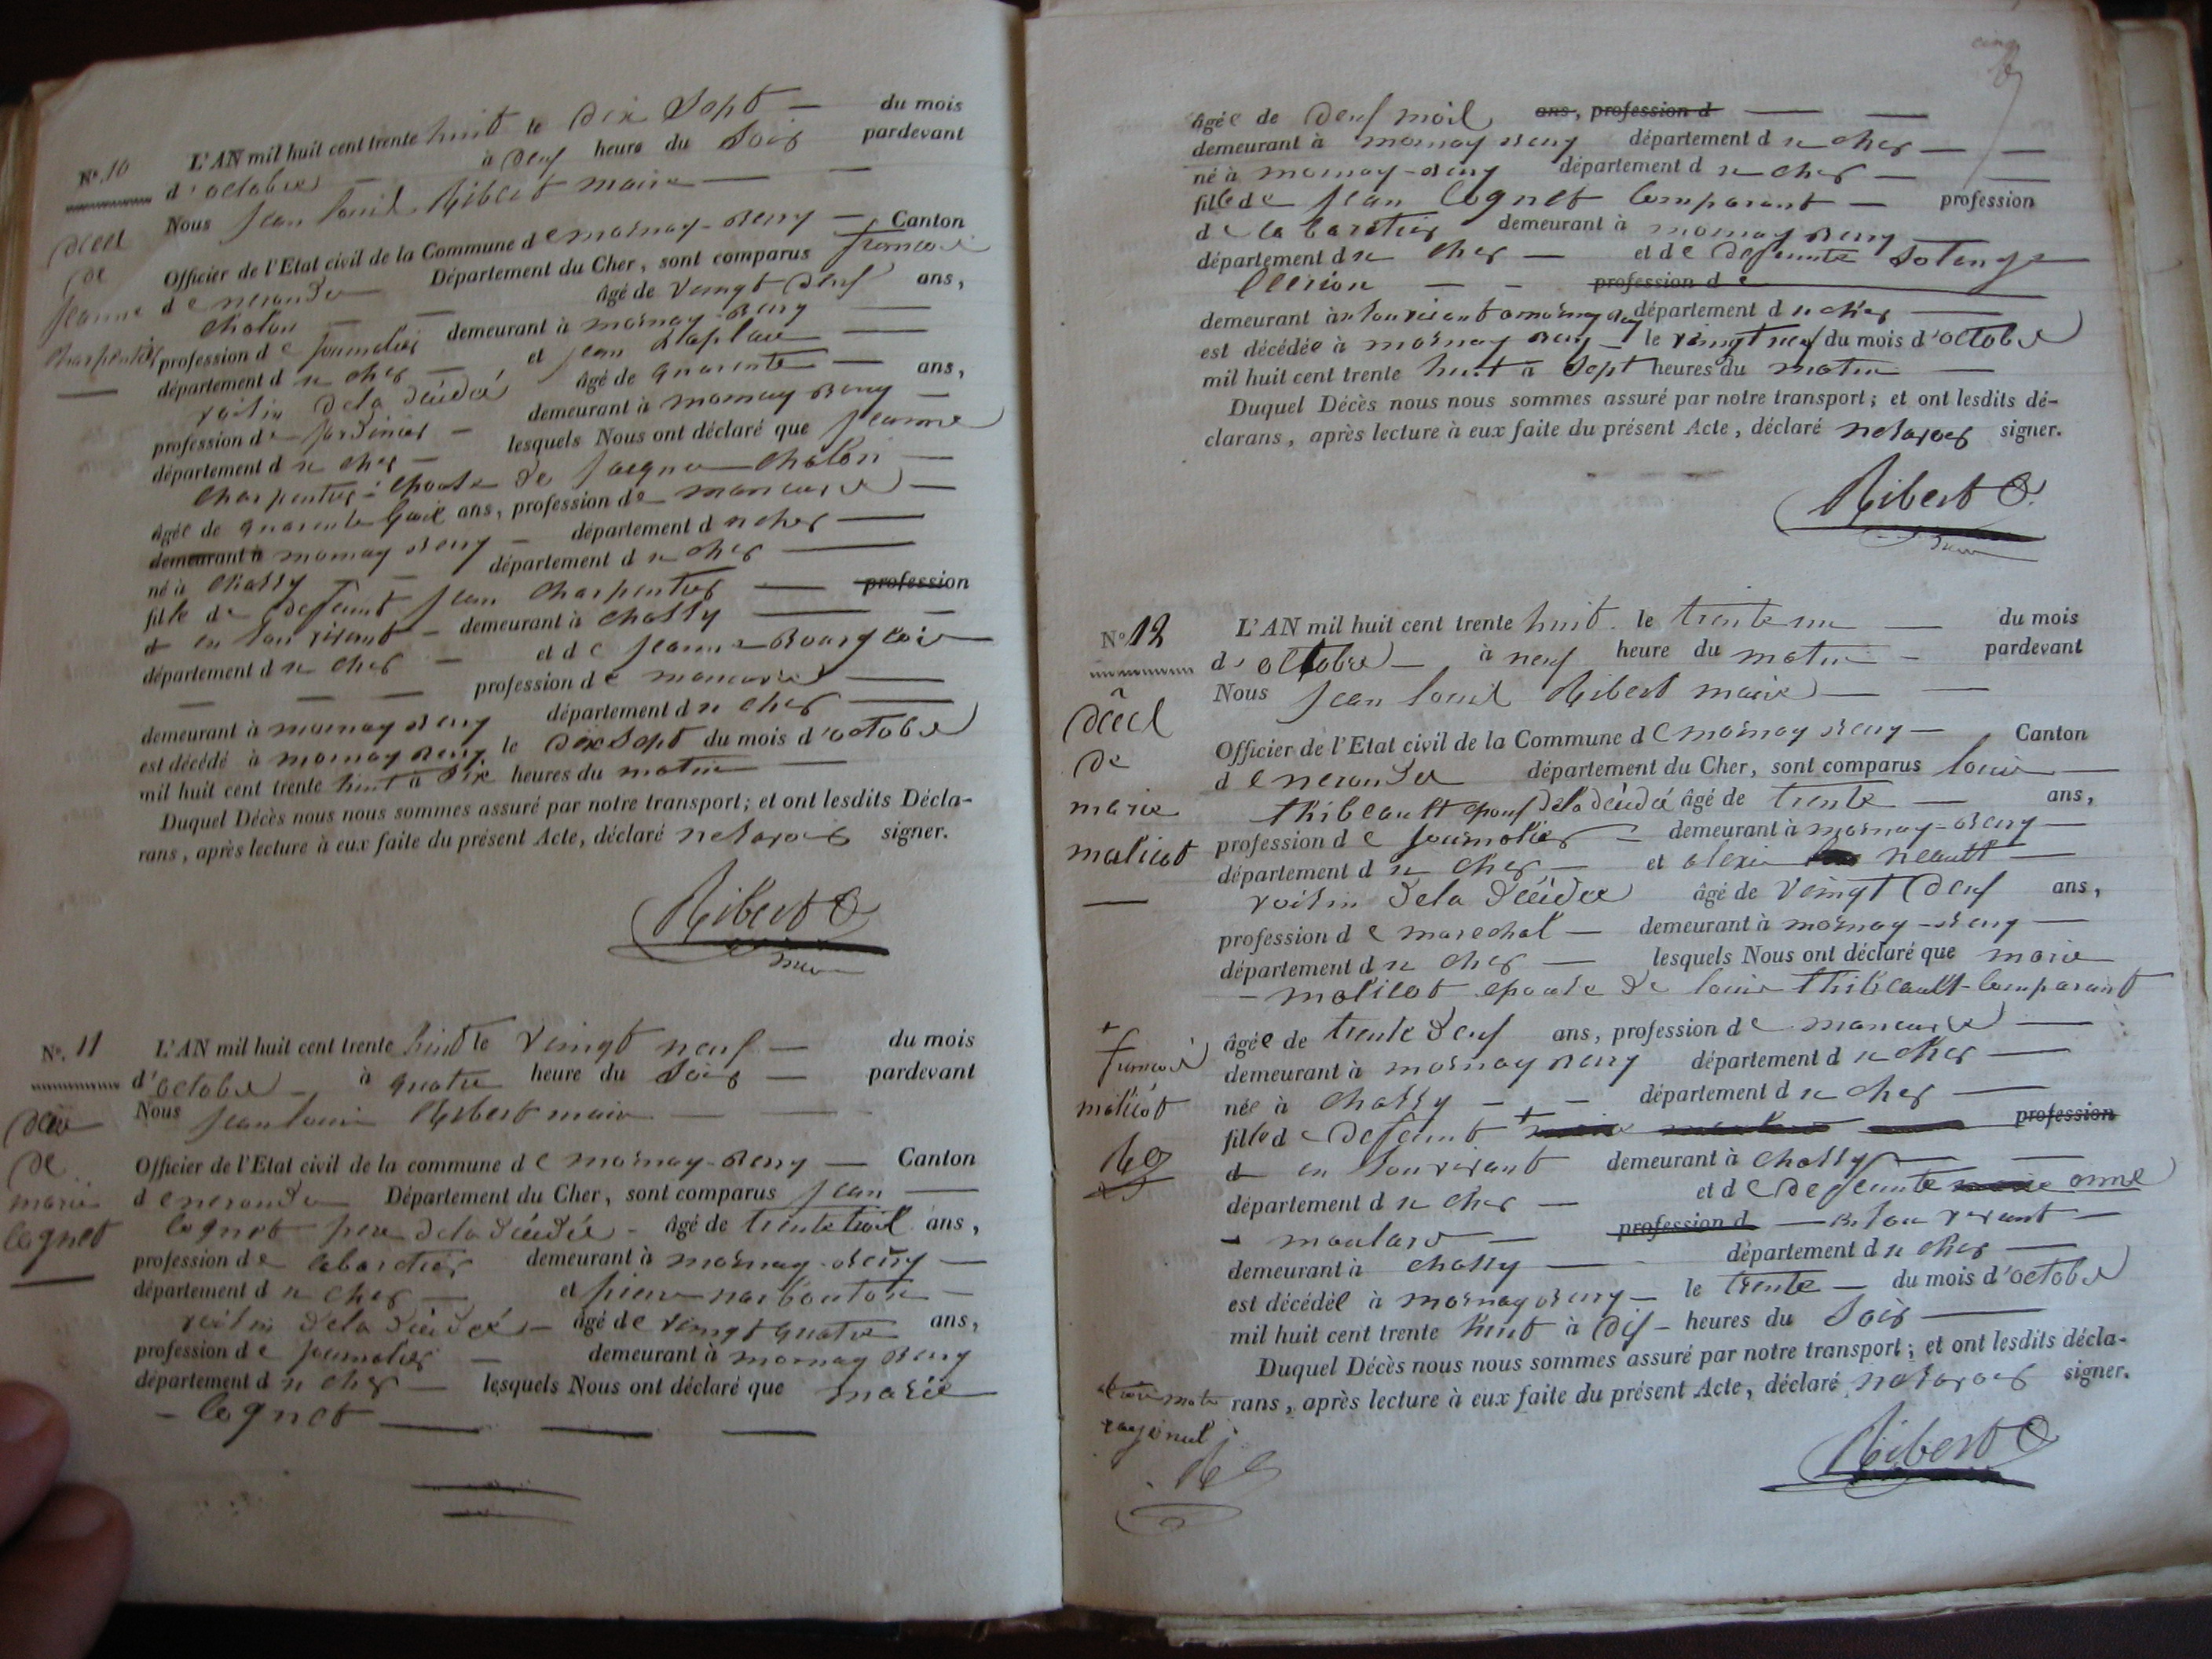 N°. 10
décès
de
jeanne
charpentier
L'AN mil huit cent trente huit le dix sept — du mois
d'octobre — à deux heure du soir pardevant
Nous jean louis Ribert maire —
Officier de l'Etat civil de la Commune de mornay-Berry — Canton
de nerondes Département du Cher, sont comparus francois
cholon — âgé de vingt deux ans,
profession de journalier demeurant à mornay-Berry —
département du cher — et jean Laplace —
voisin de la décédé âgé de quarente — ans,
profession de jardinier — demeurant à mornay Berry —
département du cher — lesquels Nous ont déclaré que jeanne
charpentier épouse de jacque cholon —
âgée de quarente trois ans, profession de maneuvre —
demeurant à mornay Berry — département du cher —
né à chassy — département du cher —
fille de defeunt jean charpentier — profession
d en son vivant — demeurant à chassy —
département du cher — et de jeanne Bourgeois
— profession de maneuvre —
demeurant à mornay Berry département du cher —
est décédé à mornay Berry le dix sept du mois d'octobre
mil huit cent trente huit à dix heures du matin —
Duquel Décès nous nous sommes assuré par notre transport; et ont lesdits Décla-
rans, après lecture à eux faite du présent Acte, déclaré ne savoir signer.
Ribert
N°. 11
de
marie
cognet
L'AN mil huit cent trente huit le vingt neuf — du mois
d'octobre — à quatre heure du soir — pardevant
Nous jean louis Ribert maire —
Officier de l'Etat civil de la commune de mornay-Berry — Canton
de nerondes Département du Cher, sont comparus jean —
cognet pere de la décédée — âgé de trente trois ans,
profession de cabartier demeurant à mornay-Berry —
département du cher — et pierre narbouton —
voisin de la décédé — âgé de vingt quatre ans,
profession de journalier — demeurant à mornay Berry
département du cher — lesquels Nous ont déclaré que marie
— cognet —
cinq
âgée de deux mois ans, profession d —
demeurant à mornay Berry département du cher —
né à mornay-Berry département du cher —
fille de jean cognet comparant — profession
de cabartier demeurant à mornay Berry
département du cher — et de defeunte solange
— profession de
demeurant à en son vivant a mornay Berry département du cher —
est décédée à mornay Berry — le vingt neuf du mois d'octobre
mil huit cent trente huit à sept heures du matin —
Duquel Décès nous nous sommes assuré par notre transport; et ont lesdits dé-
clarans, après lecture à eux faite du présent Acte, déclaré ne savoir signer.
Ribert
N° 12
décès
de
marie
malicot
L'AN mil huit cent trente huit le trente un — du mois
d'octobre — à neuf heure du matin — pardevant
Nous jean louis Ribert maire —
Officier de l'Etat civil de la Commune de mornay Berry — Canton
de nerondes département du Cher, sont comparus louis —
thibeault epoux de la décédé âgé de trente — ans,
profession de journalier — demeurant à mornay-Berry —
département du cher — et alexis neault —
voisin de la décédée âgé de vingt deux ans,
profession de marechal — demeurant à mornay-Berry —
département du cher — lesquels Nous ont déclaré que marie
— malicot epouse de louis thibeault comparant
âgée de trente deux ans, profession de maneuvre —
demeurant à mornay Berry département du cher —
née à chassy — département du cher —
+ francois
malicot
fille de defeunt + profession
d en son vivant demeurant à chassy —
département du cher — et de defeunte anne
— moulard — profession d — en son vivant —
demeurant à chassy — département du cher —
est décédée à mornay Berry — le trente — du mois d'octobre
mil huit cent trente huit à dix — heures du soir —
Duquel Décès nous nous sommes assuré par notre transport; et ont lesdits décla-
rans, après lecture à eux faite du présent Acte, déclaré ne savoir signer.
Ribert